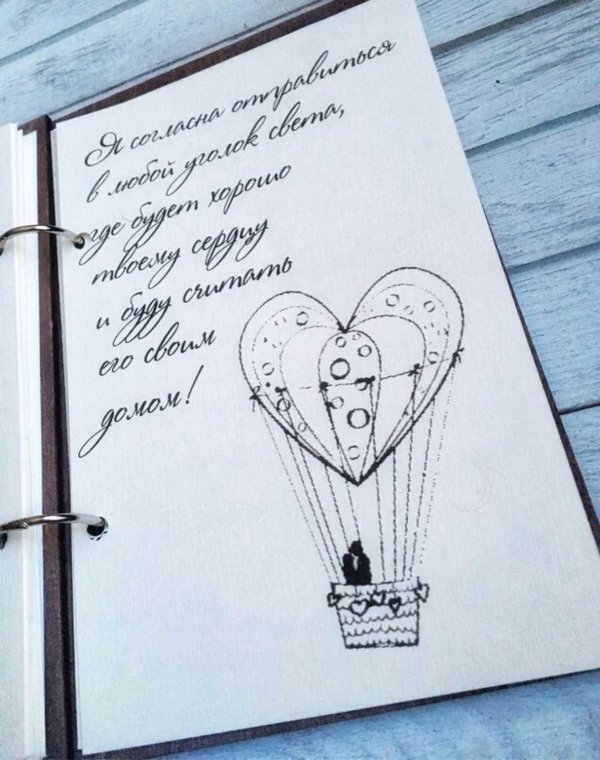 Я согласна отправиться
в любой уголок света,
где будет хорошо
твоему сердцу
и буду считать
его своим
домом!